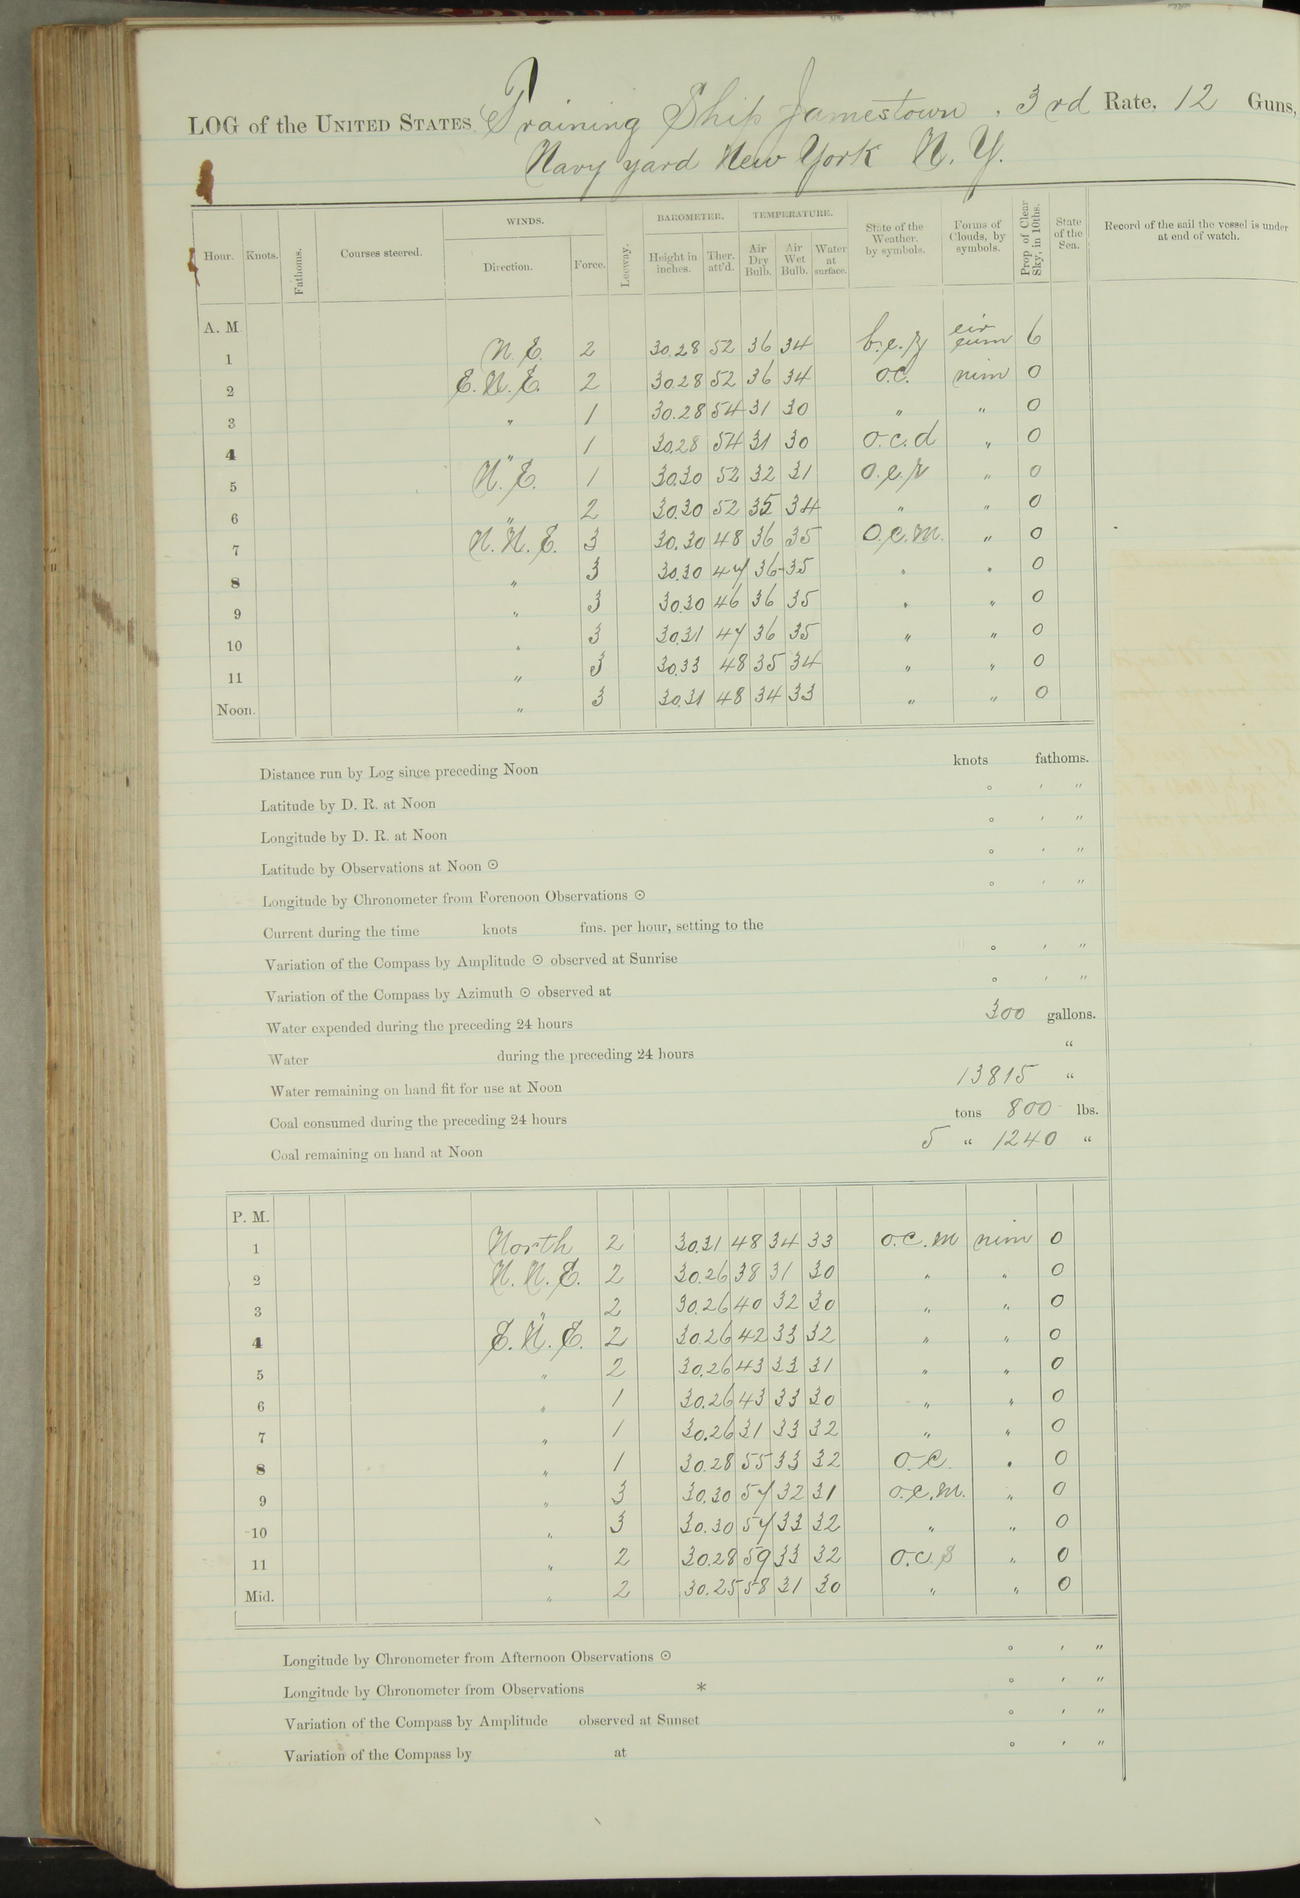 LOG of the UNITED STATES Training Ship Jamestown, 3rd Rate, 12 Guns,
Navy yard New York N. Y.
Hour. Knots. Fathoms. Courses steered. WINDS. Direction. Force. Leeway. BAROMETER. Height in inches. Ther. att'd. TEMPERATURE. Air Dry Bulb. Air Wet Bulb. Water at surface. State of the Weather, by symbols. Forms of Clouds, by symbols. Prop of Clear Sky, in 10ths. State of the Sea. Record of the sail the vessel is under at end of watch.
A. M
1 N. E. 2 30.28 52 36 34 cir cum 6
2 E. N. E. 2 30.28 52 36 34 o.c. nim 0
3 " 1 30.28 54 31 30 " " 0
4 " 1 30.28 54 31 30 o.c.d " 0
5 N. E. 1 30.30 52 32 31 " 0
6 " 2 30.30 52 35 34 " " 0
7 N. N. E. 3 30.30 48 36 35 o.c.m. " 0
8 " 3 30.30 47 36 35 " " 0
9 " 3 30.30 46 36 35 " " 0
10 " 3 30.31 47 36 35 " " 0
11 " 3 30.33 48 35 34 " " 0
Noon. " 3 30.31 48 34 33 " " 0
Distance run by Log since preceding Noon knots fathoms.
Latitude by D. R. at Noon ° ′ ″
Longitude by D. R. at Noon ° ′ ″
Latitude by Observations at Noon ⊙ ° ′ ″
Longitude by Chronometer from Forenoon Observations ⊙ ° ′ ″
Current during the time knots fms. per hour, setting to the
Variation of the Compass by Amplitude ⊙ observed at Sunrise ° ′ ″
Variation of the Compass by Azimuth ⊙ observed at ° ′ ″
Water expended during the preceding 24 hours 300 gallons.
Water during the preceding 24 hours “
Water remaining on hand fit for use at Noon 13815 “
Coal consumed during the preceding 24 hours tons 800 lbs.
Coal remaining on hand at Noon 5 “ 1240 “
P. M.
1 North 2 30.31 48 34 33 o.c.m nim 0
2 N. N. E. 2 30.26 38 31 30 " " 0
3 " 2 30.26 40 32 30 " " 0
4 E. N. E. 2 30.26 42 33 32 " " 0
5 " 2 30.26 43 33 31 " " 0
6 " 1 30.26 43 33 30 " " 0
7 " 1 30.26 31 33 32 " " 0
8 " 1 30.28 55 33 32 o.c. " 0
9 " 3 30.30 57 32 31 o.c.m. " 0
10 " 3 30.30 57 33 32 " " 0
11 " 2 30.28 59 33 32 o.c.s " 0
Mid. " 2 30.25 58 31 30 " " 0
Longitude by Chronometer from Afternoon Observations ⊙ ° ′ ″
Longitude by Chronometer from Observations * ° ′ ″
Variation of the Compass by Amplitude observed at Sunset ° ′ ″
Variation of the Compass by at ° ′ ″